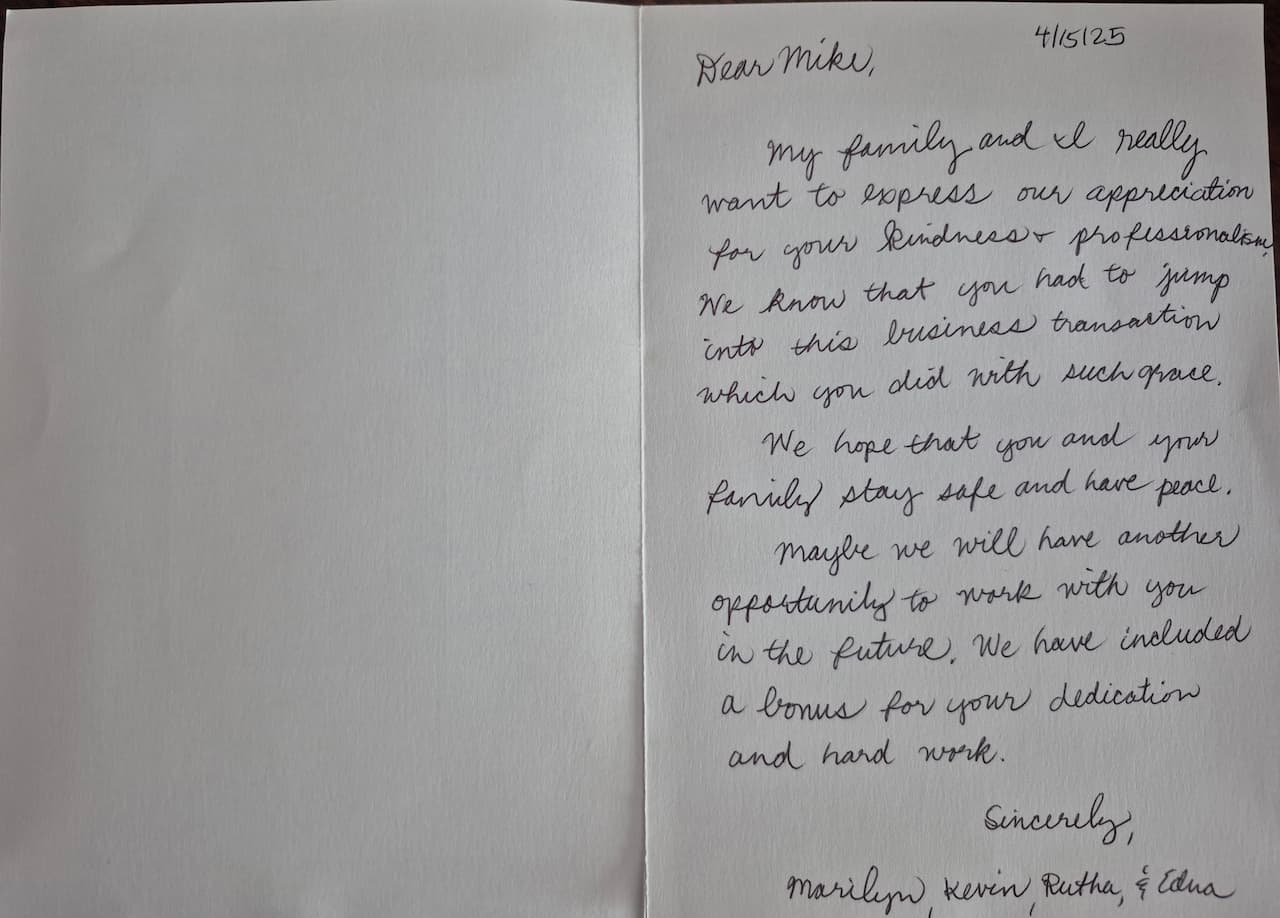 4/15/25
Dear Mike,
My family and I really
want to express our appreciation
for your kindness & professionalism.
We know that you had to jump
into this business transaction
which you did with such grace.
We hope that you and your
family stay safe and have peace.
Maybe we will have another
opportunity to work with you
in the future. We have included
a bonus for your dedication
and hard work.
Sincerely,
Marilyn, Kevin, Rutha, & Edna